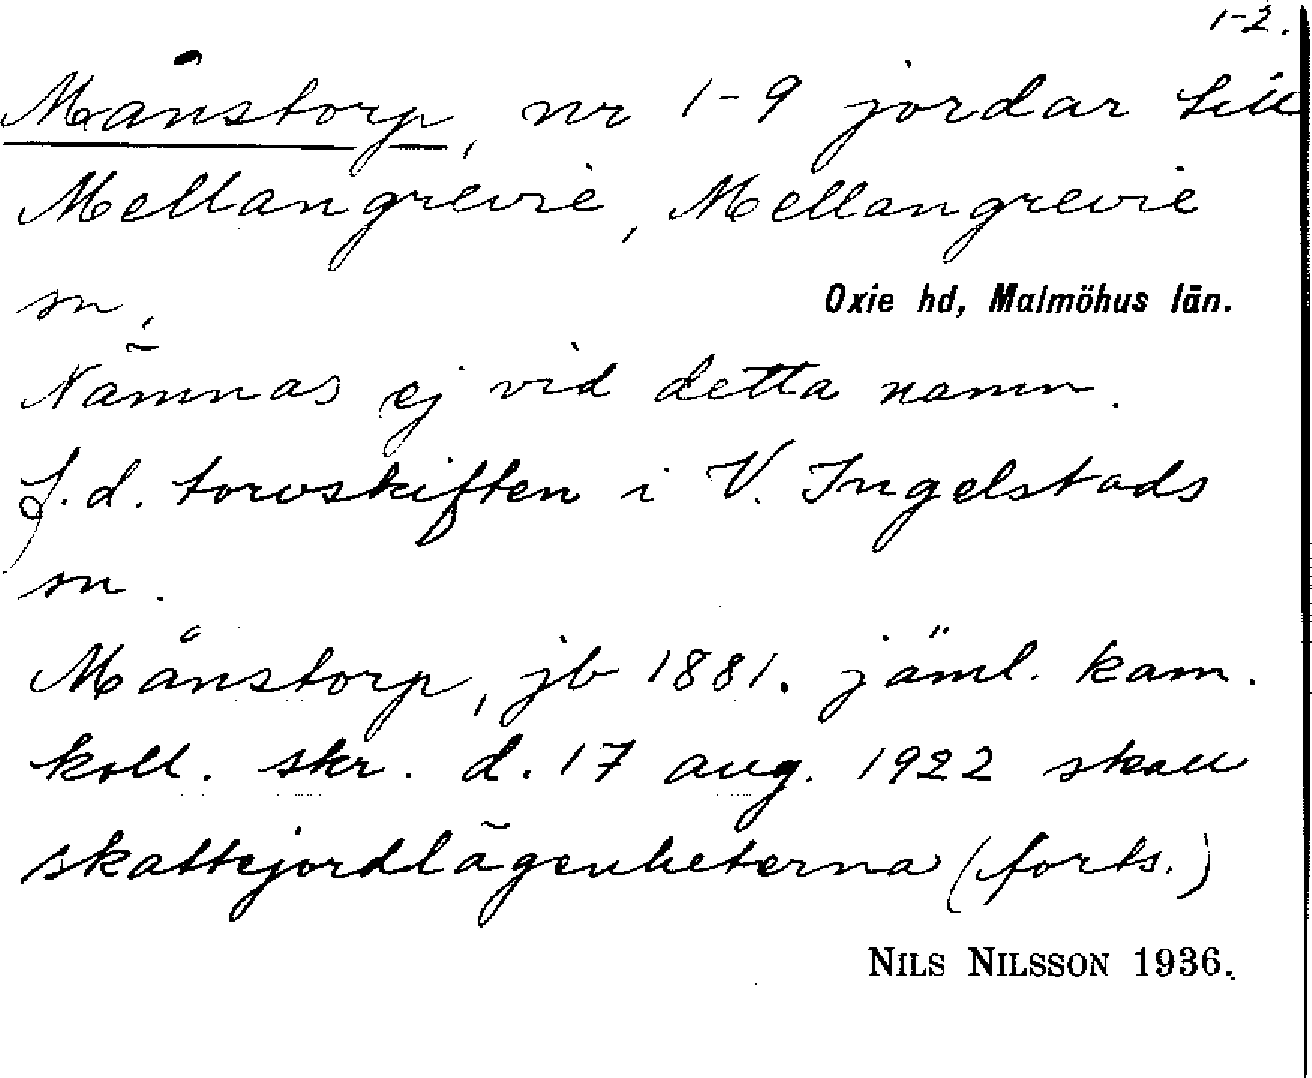 1-2.
Månstorp, nr 1-9 jordar till
Mellangrevie, Mellangrevie
sn,
Oxie hd, Malmöhus län.
Nämnas ej vid detta namn.
f.d. torvskiften i V. Ingelstads
sn.
Månstorp, jb 1881. jäml. kam.
koll. skr. d. 17 aug. 1922 skall
skattejordlägenheterna (forts.)
NILS NILSSON 1936.